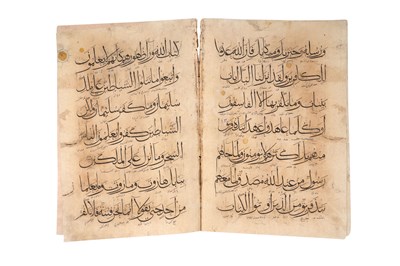 ورسله وجبريل وميكال فان الله عدو
للكافرين ولقد انزلنا اليك ايات
بينات وما يكفر بها الا الفاسقون
او كلما عاهدوا عهدا نبذه فريق
منهم بل اكثرهم لا يؤمنون ولما جاءهم
رسول من عند الله مصدق لما معهم
نبذ فريق من الذين اوتوا الكتاب
كتاب الله وراء ظهورهم كانهم لا يعلمون
واتبعوا ما تتلوا الشياطين على ملك
سليمان وما كفر سليمان ولكن
الشياطين كفروا يعلمون الناس
السحر وما انزل على الملكين
ببابل هاروت وماروت وما يعلمان
من احد حتى يقولا انما نحن فتنة فلا تكفر